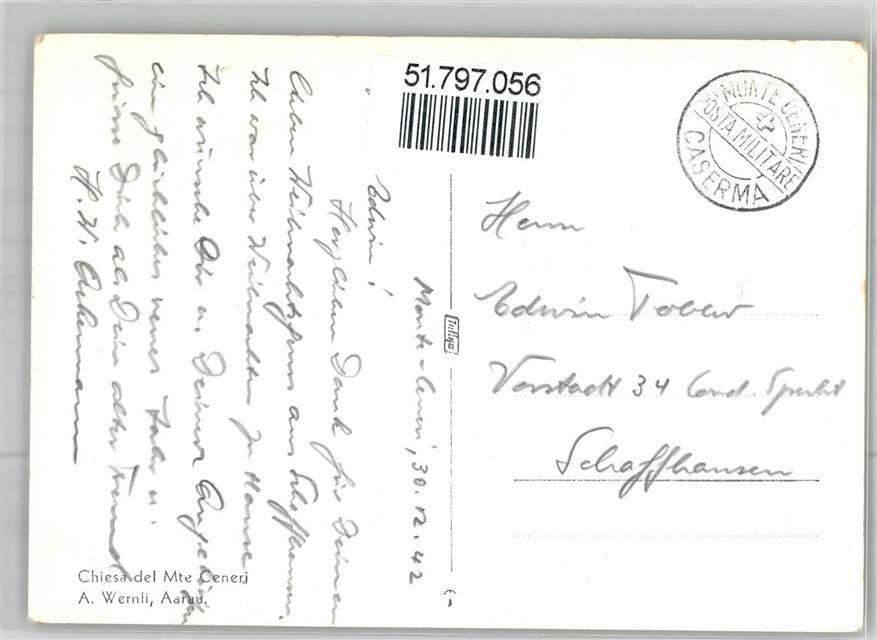 51.797.056
MONTE CENERI
POSTA MILITARE
CASERMA
Monte-Ceneri, 30.12.42
Edwin!
Herzlichen Dank für Deinen
lieben Weihnachtsgruss aus Schaffhausen.
Ich war über Weihnachten zu Hause
Ich wünsche Dir u. Deinen Angehörigen
ein glückliches neues Jahr u.
grüsse Dich als Dein alter Freund
H. W. Ackermann
Herrn
Edwin Tobler
Vorstadt 34 Cond.
Schaffhausen
Chiesa del Mte Ceneri
A. Wernli, Aarau.